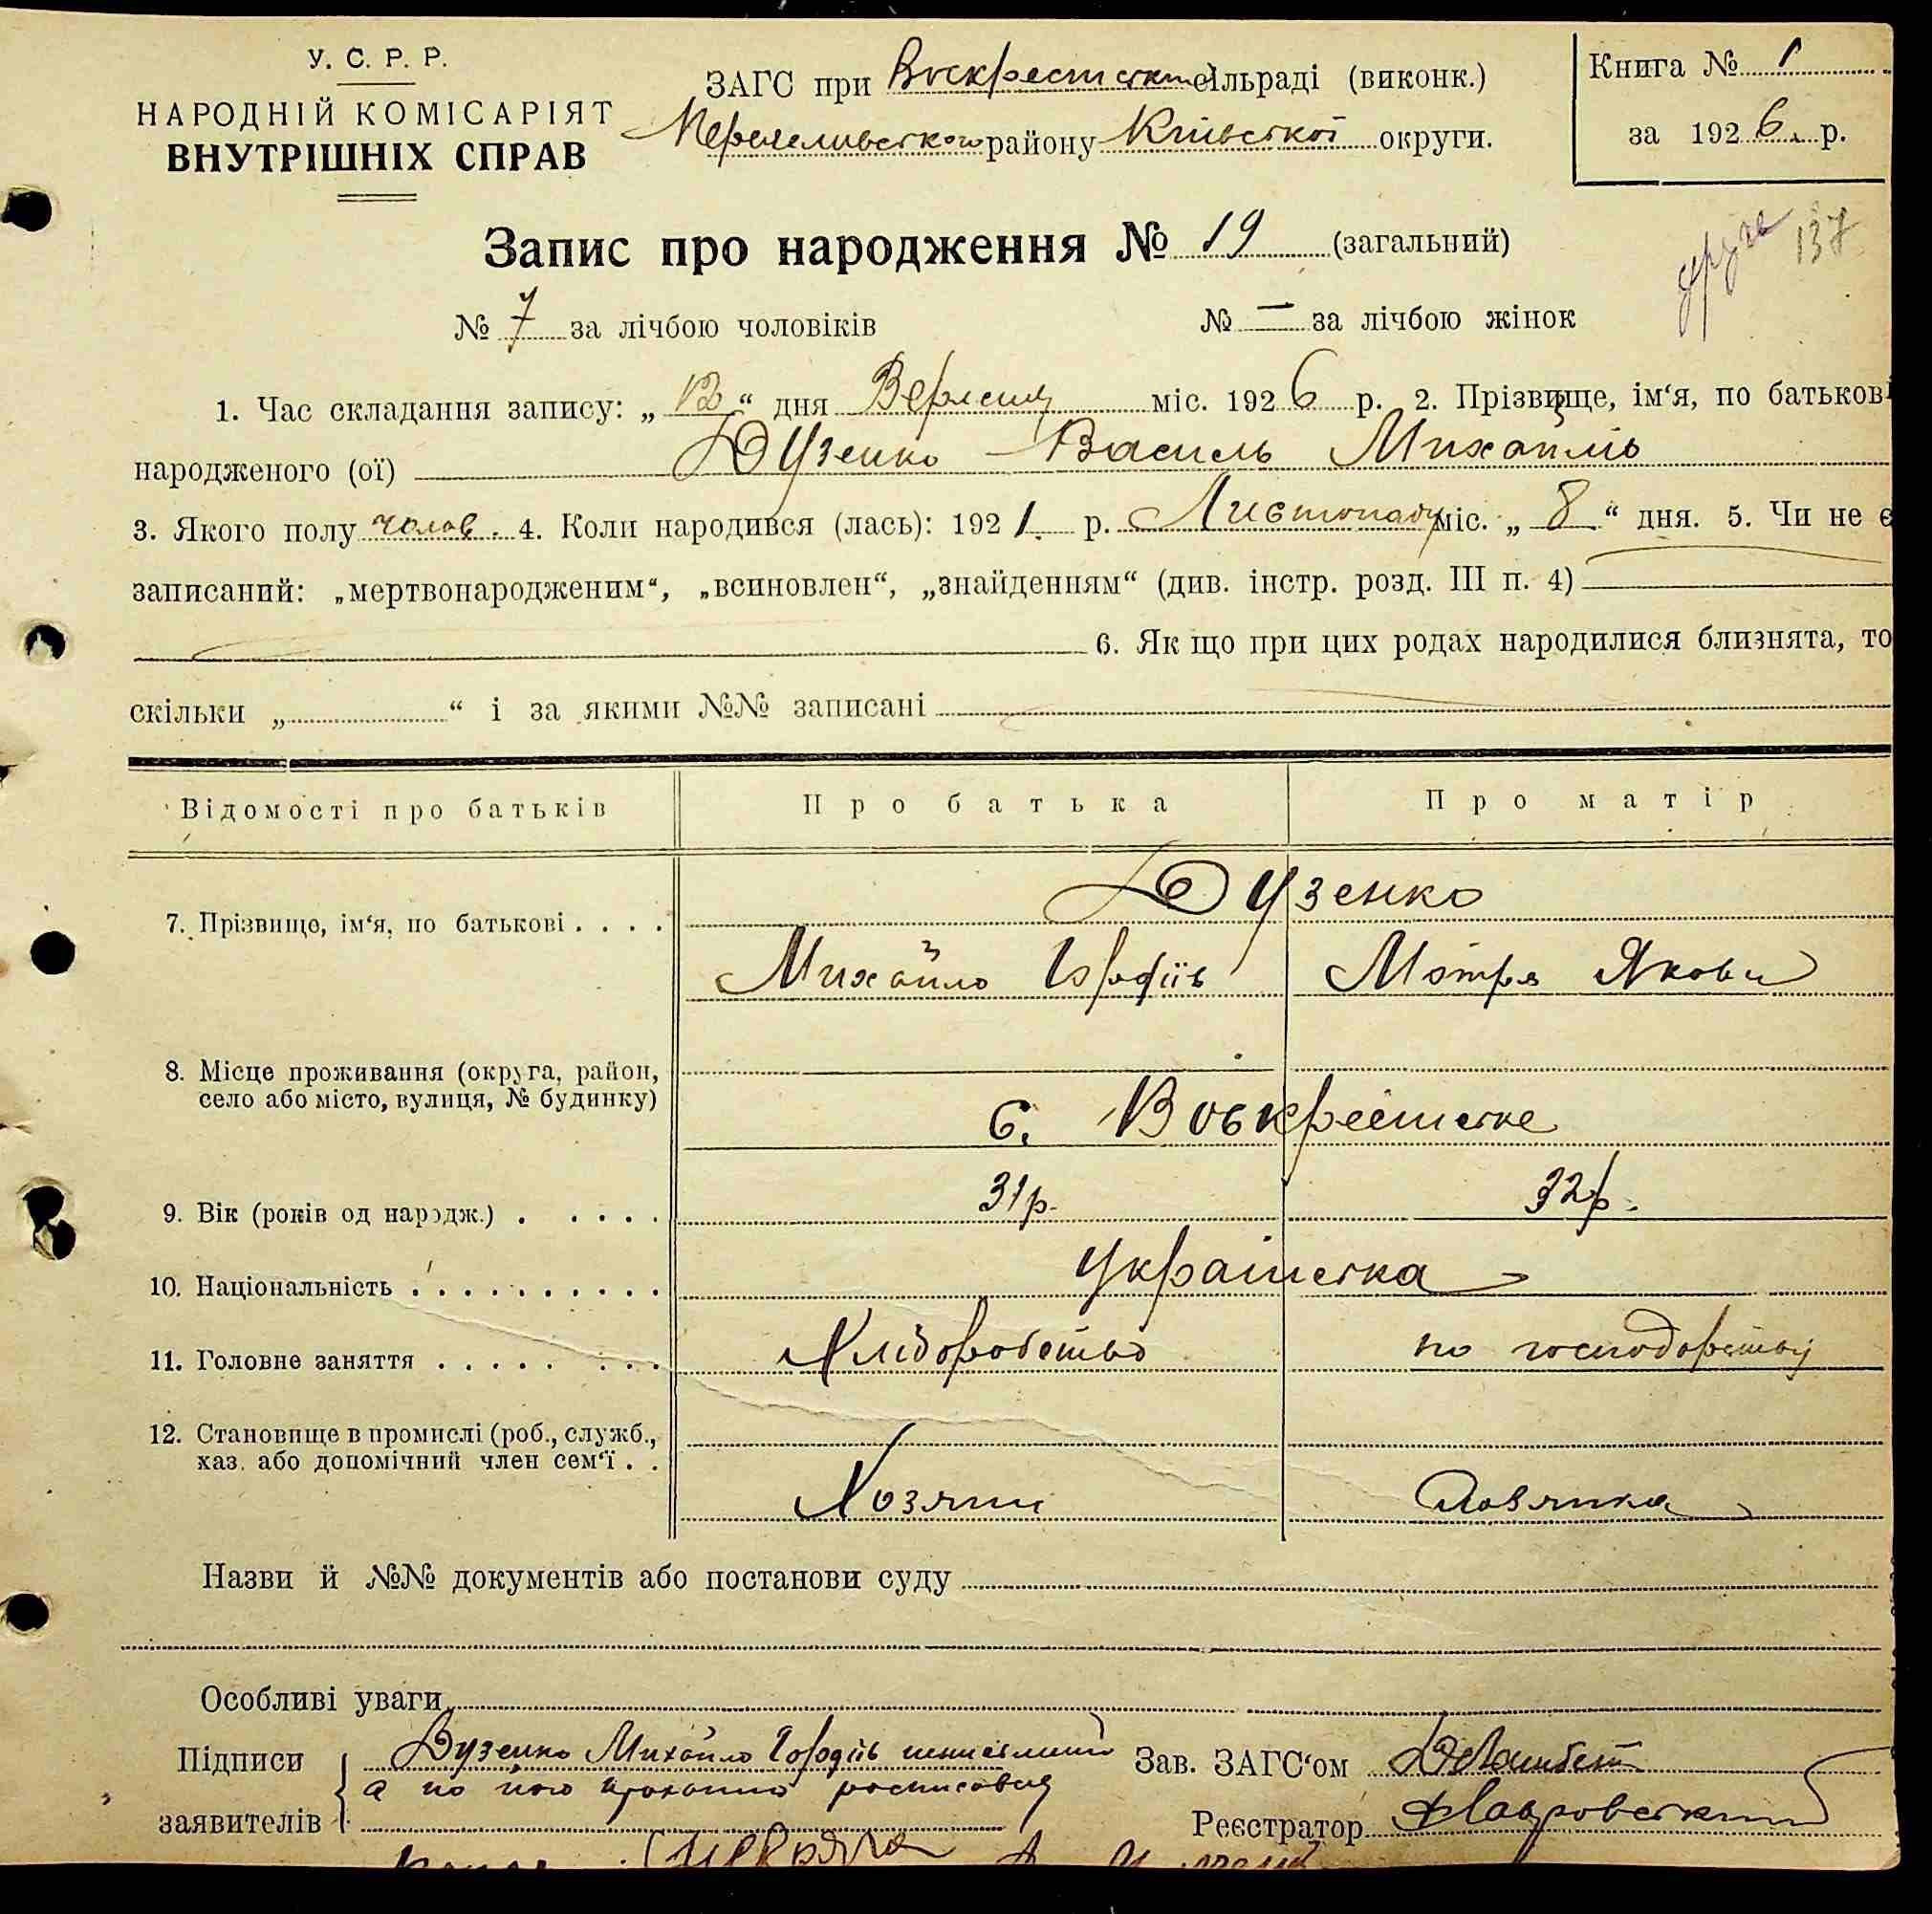 У. С. Р. Р.
НАРОДНІЙ КОМІСАРІЯТ
ВНУТРІШНІХ СПРАВ
ЗАГС при Воскресенскій сільраді (виконк.)
району Київської округи.
Книга № 1
за 1926 р.
137
Запис про народження № 19 (загальний)
№ 7 за лічбою чоловіків
№ — за лічбою жінок
1. Час складання запису: „12“ дня Вересня міс. 1926 р. 2. Прізвище, ім‘я, по батькові
народженого (ої) Дузенко Василь Михайлів
3. Якого полу чолов. 4. Коли народився (лась): 1921 р. Листопаду міс. „8“ дня. 5. Чи не є
записаний: „мертвонародженим“, „всиновлен“, „знайденням“ (див. інстр. розд. III п. 4)
6. Як що при цих родах народилися близнята, то
скільки „ “ і за якими №№ записані
Відомості про батьків Про батька Про матір
Дузенко
7. Прізвище, ім‘я, по батькові . . . .
Михайло Гордіїв Мотря Якови
8. Місце проживання (округа, район,
село або місто, вулиця, № будинку)
с. Воскресенske
9. Вік (років од народж.) . . . . . 31р. 32р.
10. Національність . . . . . . . . . . Українська
11. Головне заняття . . . . . . . . Хліборобство по господарству
12. Становище в промислі (роб., служб.,
хаз. або допомічний член сем‘ї . .
Хозяин
Назви й №№ документів або постанови суду
Особливі уваги
Підписи заявителів
Дузенко Михайло Гордіїв неписьмений
а по його проханню росписався
Зав. ЗАГС‘ом
Реєстратор Лавровський